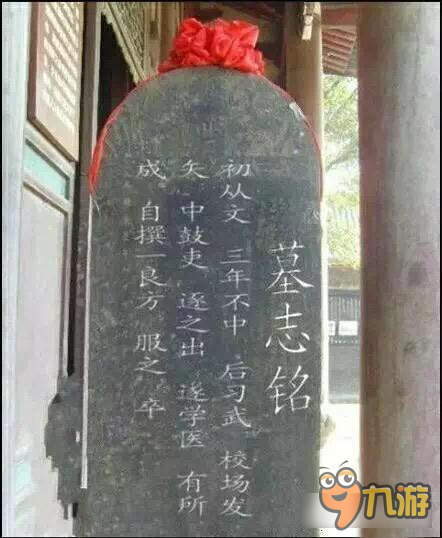 墓志铭
初从文 三年不中 后习武 校场发
矢 中鼓吏 逐之出 遂学医 有所
成 自撰一良方 服之 卒
九游